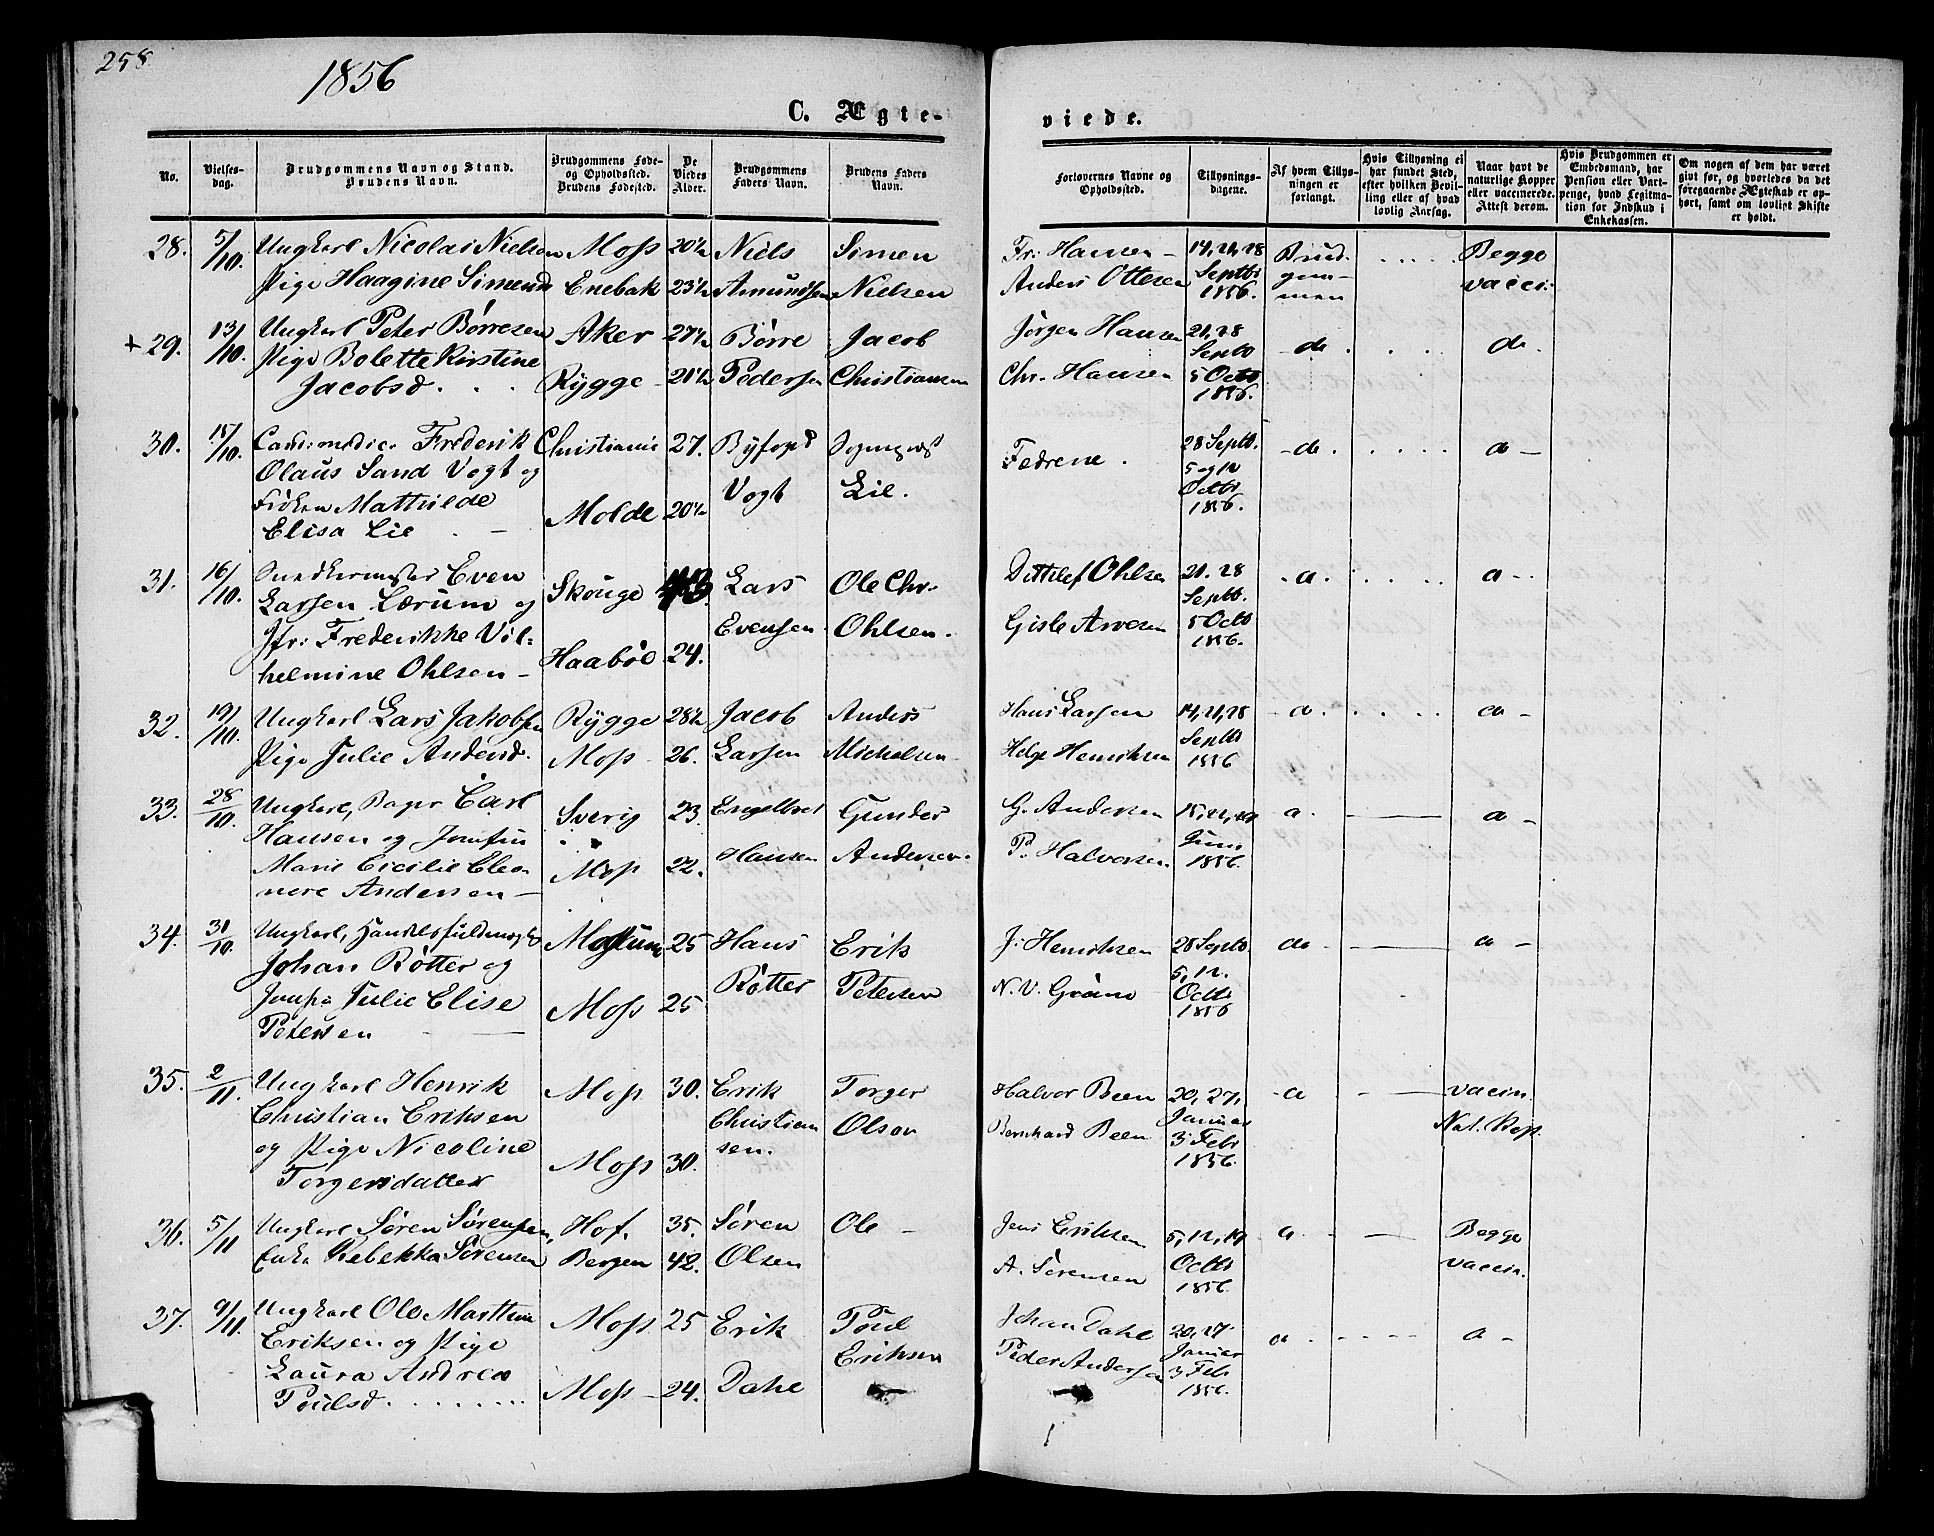 258
1856
C. Ægte-
viede.
No.
Vielses-
dag.
Brudgommens Navn og Stand.
Brudens Navn.
Brudgommens Føde-
og Opholdsted.
Brudens Fødested.
De
Viedes
Alder.
Brudgommens
Faders Navn.
Brudens Faders
Navn.
Forlovernes Navne og
Opholdssted.
Tillysnings-
dagene.
Af hvem Tillys-
ningen er
forlangt.
Hvis Tillysning ei
har fundet Sted,
efter hvilken Bevil-
ling eller af hvad
lovlig Aarsag.
Naar havt de
naturlige Kopper
eller vaccinerede.
Attest derom.
Hvis Brudgommen er
Embedsmand, har
Pension eller Vart-
penge, hvad Legitma-
tion for Indskud i
Enkekassen.
Om nogen af dem har været
givt før, og hvorledes da det
foregaaende Ægteskab er op-
hørt, samt om lovligt Skifte
er holdt.
28. 5/10. Ungkarl Nicolai Nielsen Moss 20 1/2 Niels Simen Fr. Hansen 14, 21, 28 Brud- Begge
Pige Haagine Simensd Enebak 23 1/2 Amundsen Nielsen Anders Ottesen Septbr 1856. gom-men vaccin.
+ 29. 13/10. Ungkarl Peter Børresen Aker 27 1/2 Børre Jacob Jørgen Hansen 21, 28 Septb -do. do.
Pige Bolette Kirstine
Jacobsd. Rygge 21 1/2 Pedersen Christiansen Chr. Hansen 5 Octb 1856.
30. 15/10. Cand. medic. Frederik Christiania 27. Byfogd Sogneprest 28 Septb. -do. do-
Olaus Sand Vogt og Vogt Lie. Fædrene. 5 og 12
Frøken Mathilde Molde 20 1/2 Octbr
Elisa Lie 1856.
31. 16/10. Snedkermester Even Skouge 43. Lars Ole Chr. Dittlef Ohlsen 21. 28 -do. do-
Larsen Lærum og Evensen Ohlsen. Gisle Arvesen Septb. 5 Octb
Jfr: Frederikke Vil-
helmine Ohlsen Haabøl 24. 1856.
32. 19/10. Ungkarl Lars Jakobsen Rygge 28 1/2 Jacob Anders Hans Larsen 14, 21, 28 -do. do-
Pige Julie Andersd. Moss 26. Larsen Michelsen Helge Henriksen Septbr 1856
33. 28/10. Ungkarl, Bager Carl Sverig 23. Engelbret Gunder G. Andersen 15, 22, 29 do. do-
Hansen og Jomfru
Marie Cicilie Eleo- Moss 22. Hansen Andersen. P. Halvorsen Juni 1856.
nore Andersen
34. 31/10. Ungkarl, Handelsfuldmægtig 25 Hans Erik J. Henriksen 28 Septb. do- do-
Johan Rötter og Rötter Petersen N. V. Gram 5, 12.
Jomfr Julie Elise Moss 25. Octbr
Petersen 1856
35. 2/11. Ungkarl Henrik Moss 30. Erik Torger Halvor Been 20, 27, -do vaccin.
Christian Eriksen Christian Olsen Bernhard Been Januar Nat. Kop.
og Pige Nicoline Moss 30. sen. 3 Febr
Torgersdatter 1856.
36. 5/11 Ungkarl Søren Sørensen, Hof. 35. Søren Ole Jens Eriksen 5, 12, 19 do Begge
Enke Rebekka Sørensen Bergen 42. Olsen A. Sørensen Octbr 1856. vaccin.
37. 9/11. Ungkarl Ole Marthin Moss 25 Erik Poul Johan Dahl 20, 27. do do-
Eriksen og Pige Eriksen Peder Andersen Januar
Laura Andrea Moss 24. Dahl 3 Feb
Poulsd. 1856.